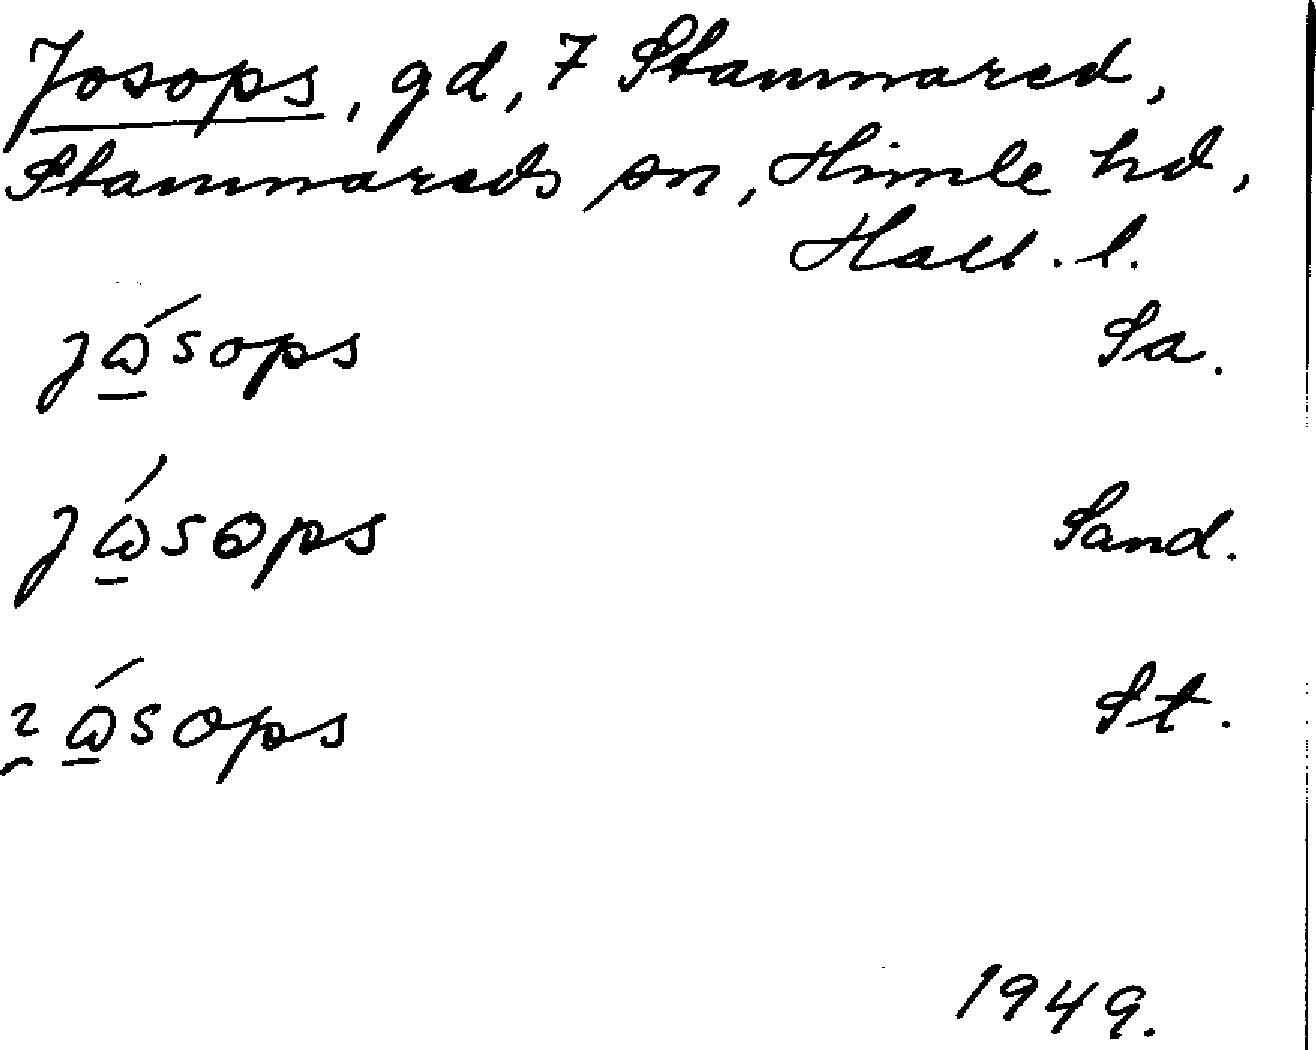 Josops, gd, 7 Stamnared,
Stamnareds sn, Himle hd,
Hall. l.
jɷ̲́sops Sa.
jɷ̲́sops Sand.
ɷ̲́sops St.
1949.